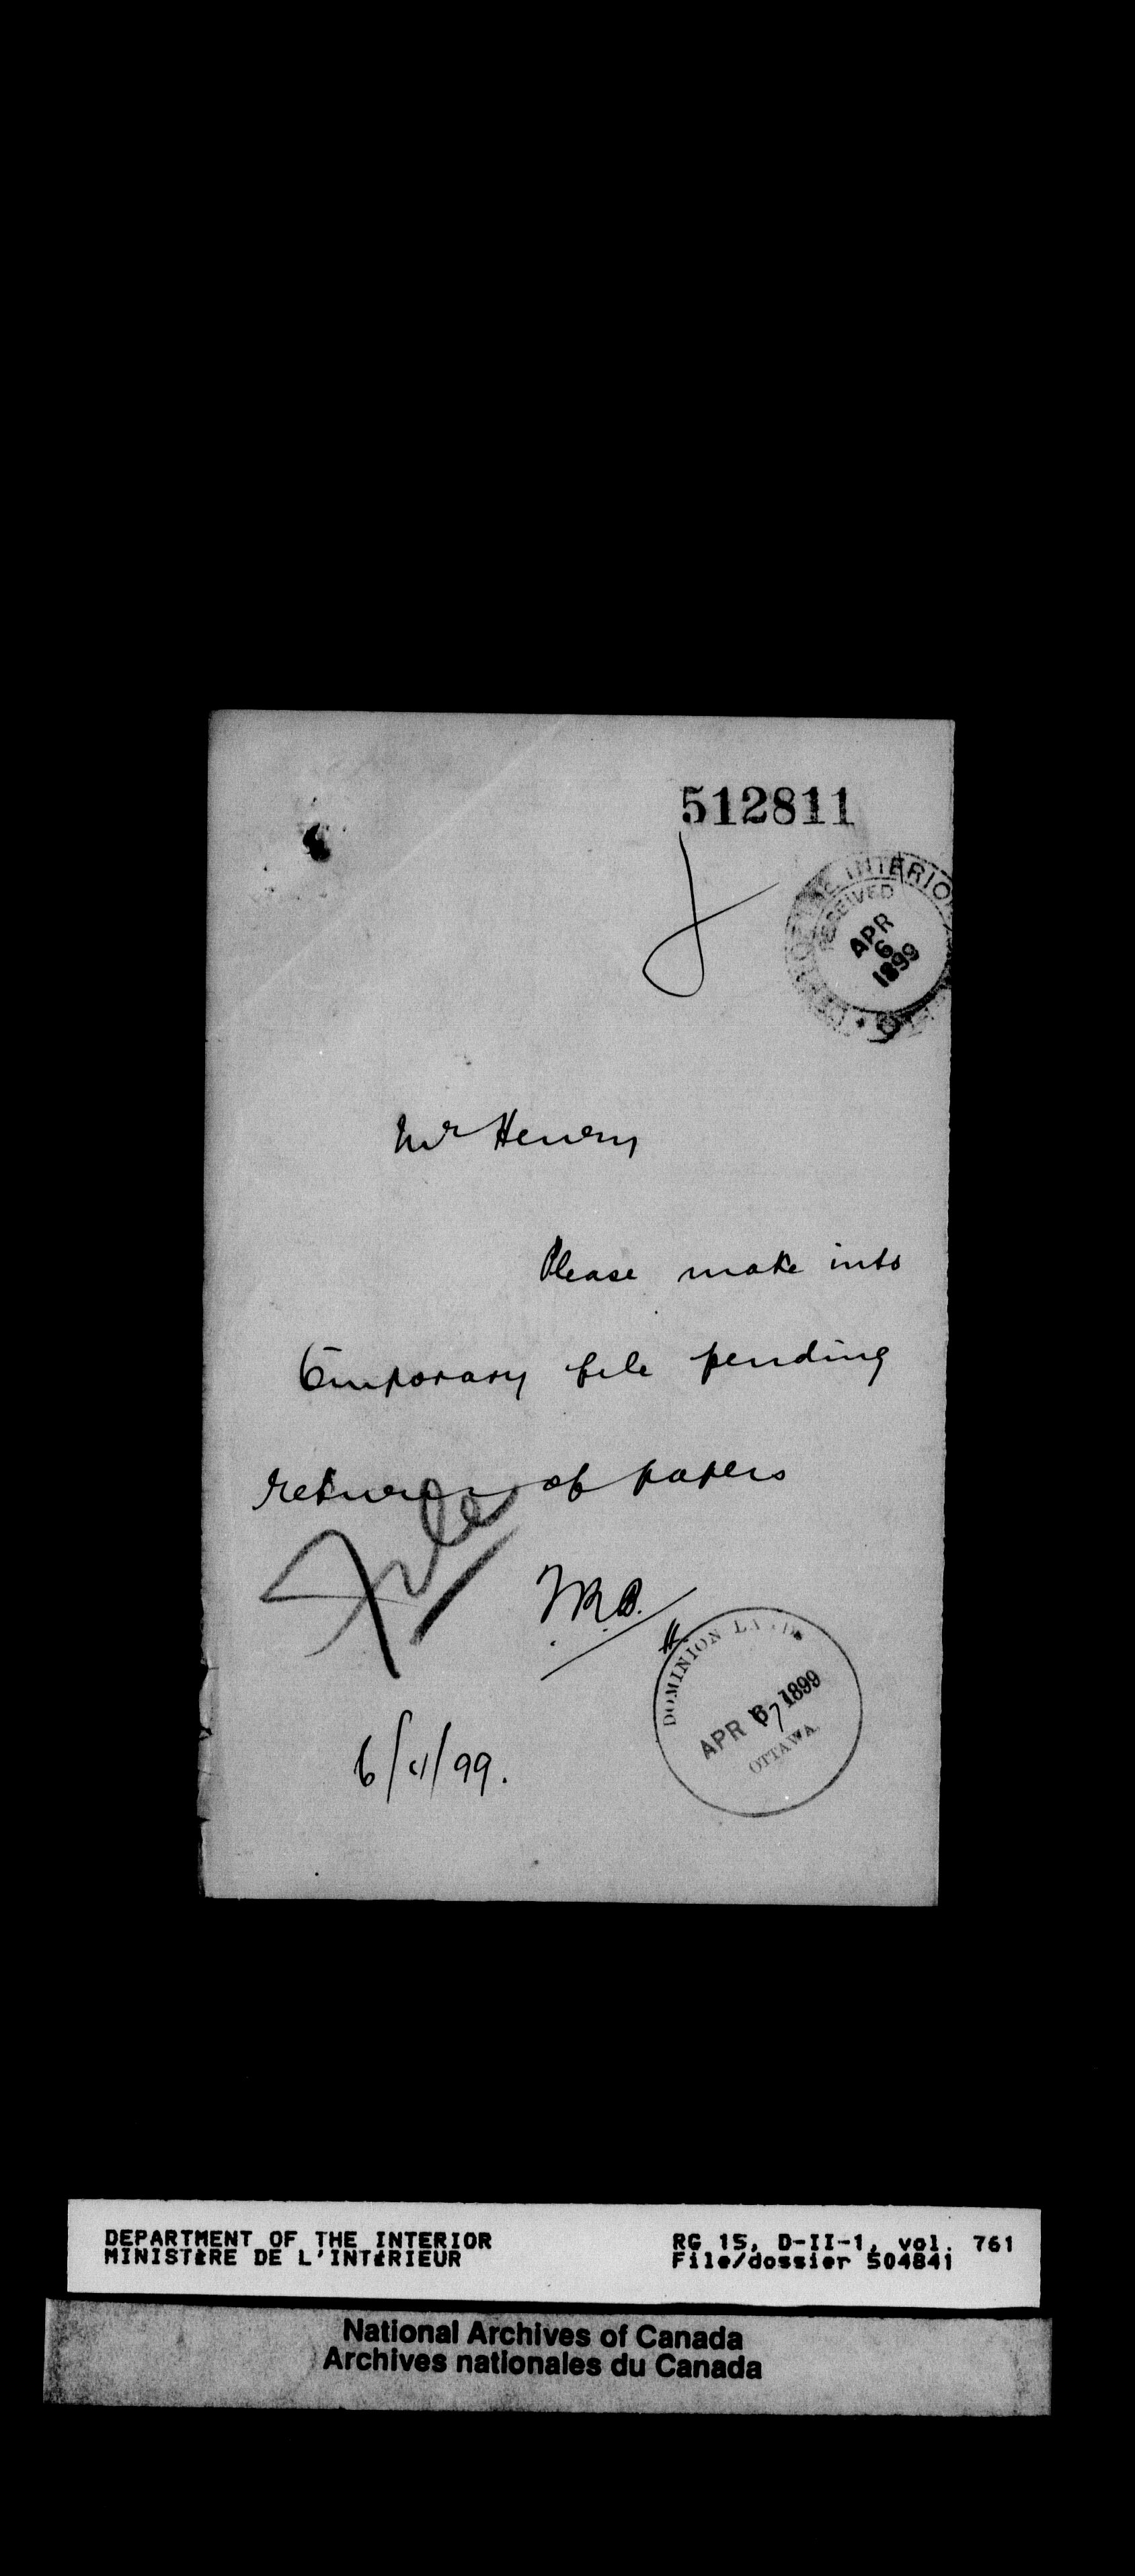 512811
INTERIOR
RECEIVED
APR
6
1899
Mr Henry
Please make into
temporary file pending
return of papers
File
6/4/99.
DOMINION LANDS
APR 7 1899
OTTAWA
DEPARTMENT OF THE INTERIOR
MINISTÈRE DE L'INTÉRIEUR
RG 15, D-II-1, vol. 761
File/dossier 504841
National Archives of Canada
Archives nationales du Canada